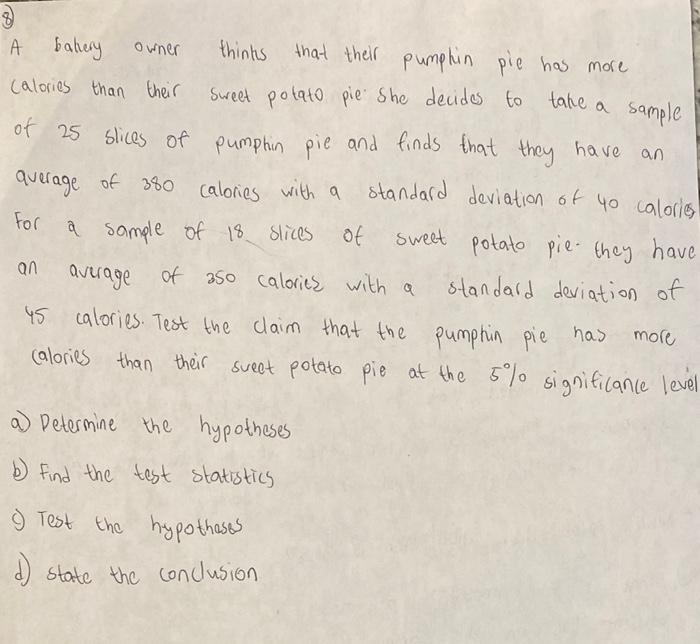 8)
A bakery owner thinks that their pumpkin pie has more
calories than their sweet potato pie. She decides to take a sample
of 25 slices of pumpkin pie and finds that they have an
average of 380 calories with a standard deviation of 40 calories
For a sample of 18 slices of sweet potato pie. they have
an average of 350 calories with a standard deviation of
45 calories. Test the claim that the pumpkin pie has more
calories than their sweet potato pie at the 5% significance level
a) Determine the hypotheses
b) Find the test statistics
c) Test the hypotheses
d) State the conclusion